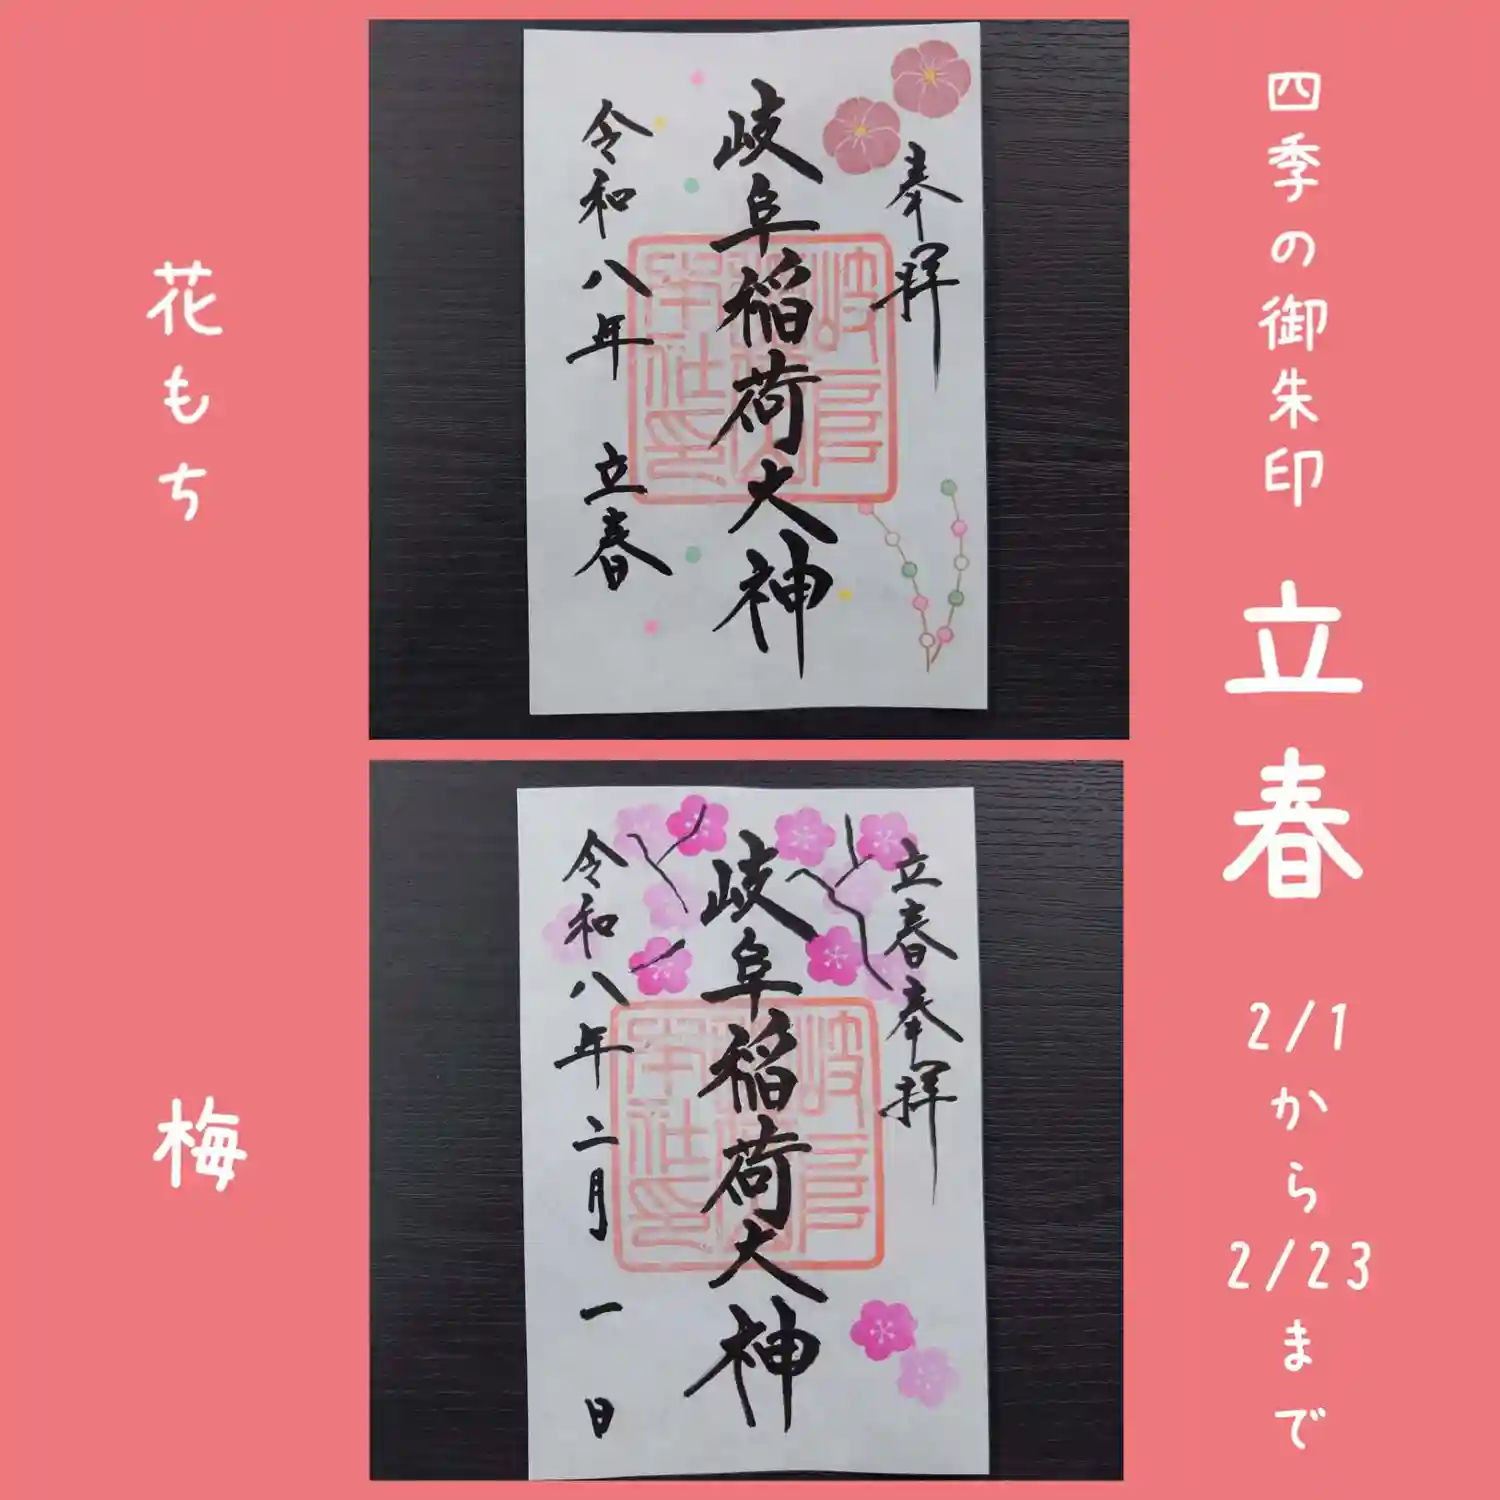 四季の御朱印 立春 2/1から2/23まで
奉拝
岐阜稲荷大神
令和八年 立春
花もち
立春奉拝
岐阜稲荷大神
令和八年二月一日
梅